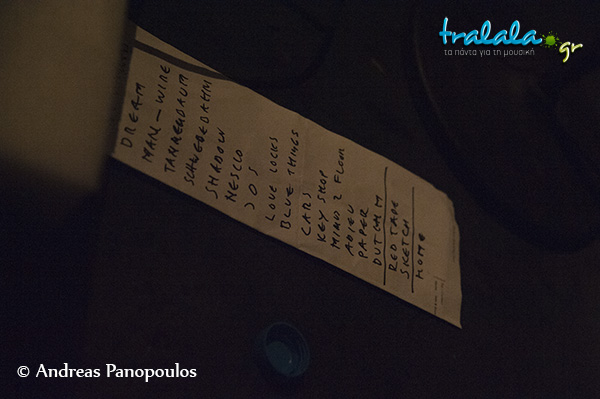 tralala.gr
τα πάντα για τη μουσική
DREAM
MAN-WIRE
TANNENBAUM
SCHWEBEBAHN
SHADOW
NESCIO
JOS
LOVE LOCKS
BLUE THINGS
CARS
KEY SHOP
MIND 2 FLOOR
ADIEU
PAPER
DUTCH M
RED TAPE
SKETCH
HOME
© Andreas Panopoulos